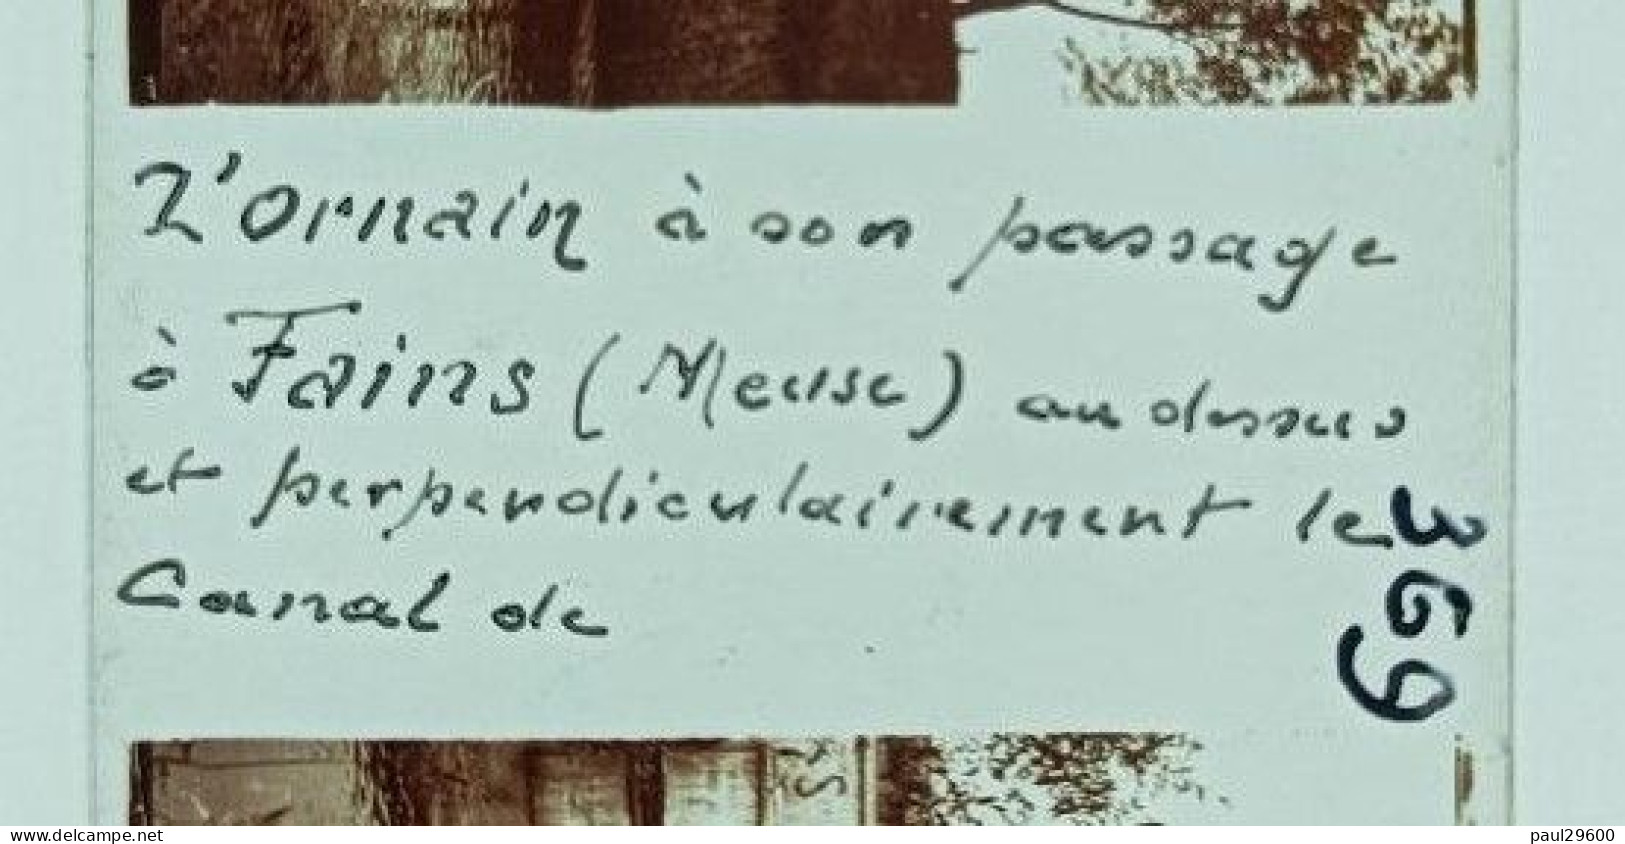 L'Ornain à son passage
à Fains (Meuse) au dessus
et perpendiculairement le
Canal de
369
www.delcampe.net
paul29600